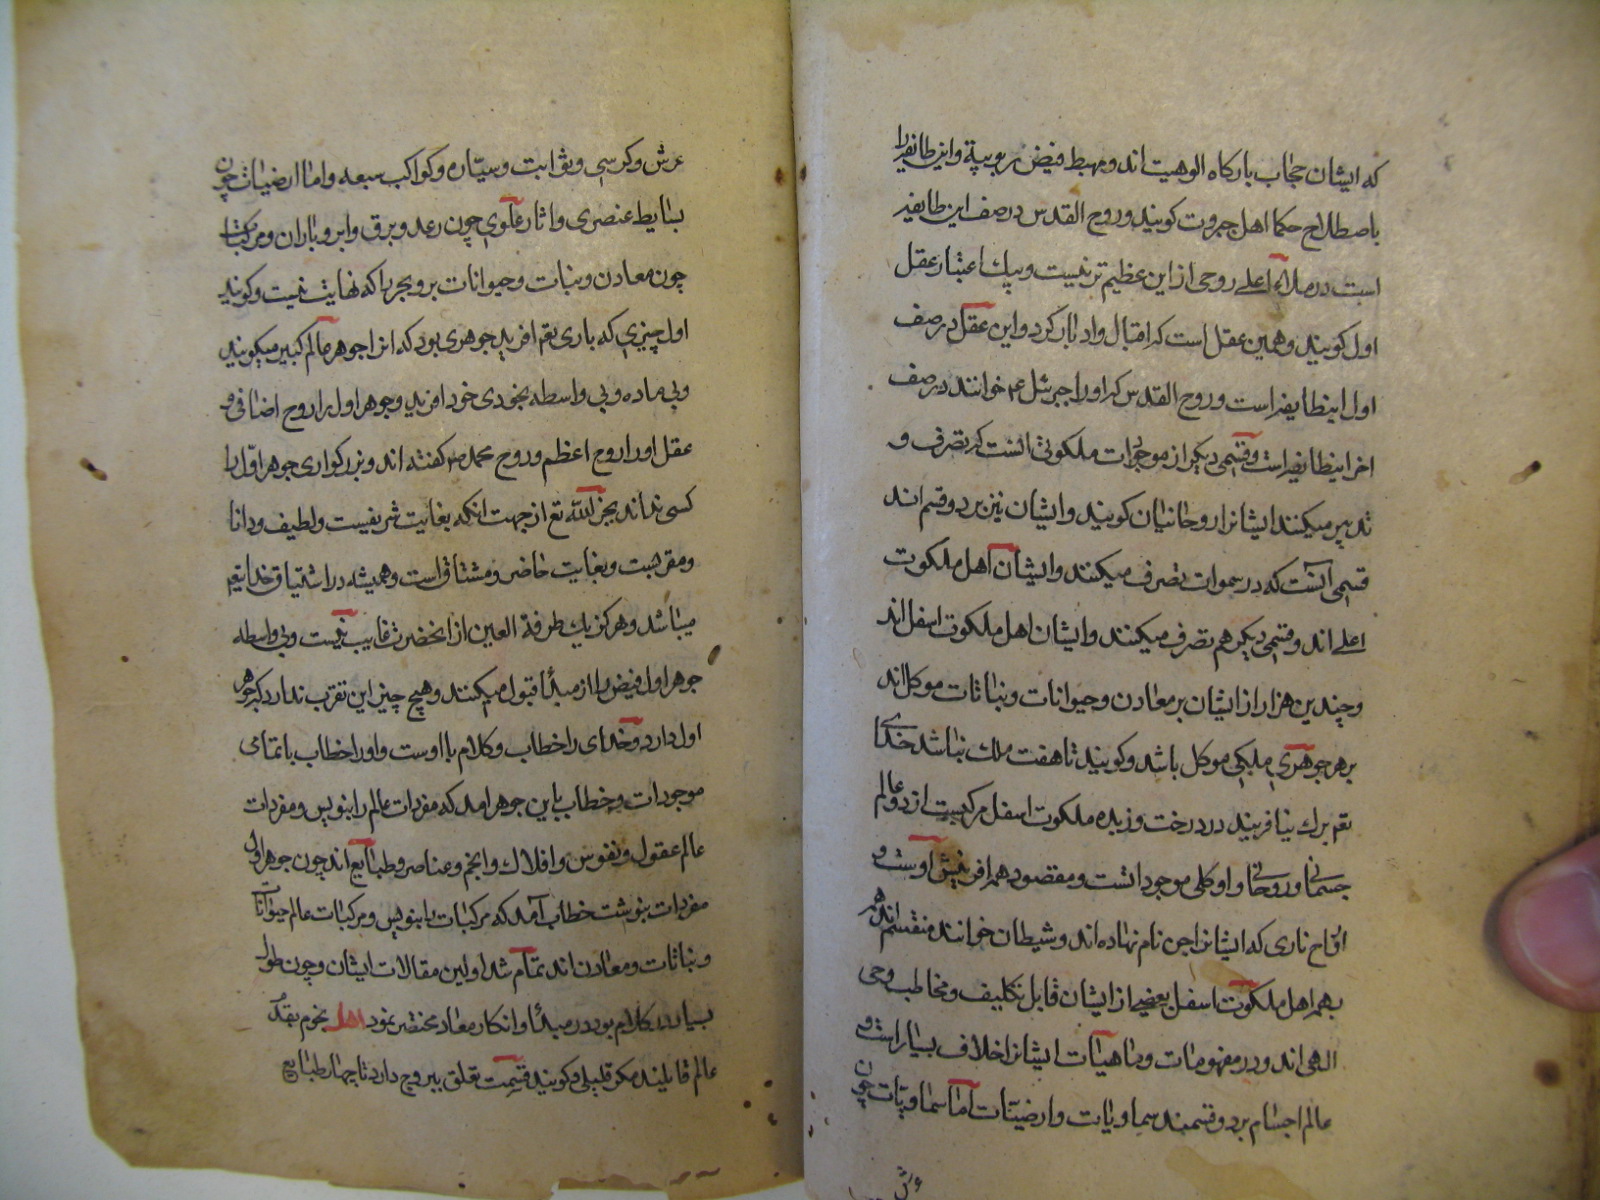 که ایشان حجاب بارکاه الوهیت اند و مهبط فیض ربوبیة و این طایفه را
باصطلاح حکما اهل جبروت کویند و روح القدس در صف این طایفه
است در ملاء اعلے روحی از این عظیم تر نیست و بیك اعتبار عقل
اول کویند و همین عقل است که اقبال و ادبار کرد و این عقل در صف
اول اینطایفه است و روح القدس که او را جبرئل ع خوانند در صف
اخر اینطایفه است و قسمی دیکر از موجودات ملکوتی انست که تصرف و
تدبیر میکنند ایشانرا روحانیان کویند و ایشان نیز بر دو قسم اند
قسمی آنست که در سموات تصرف میکنند و ایشان اهل ملکوت
اعلے اند و قسمی دیکر هم تصرف میکنند و ایشان اهل ملکوت اسفل اند
و چندین هزار از ایشان بر معادن و حیوانات و نباتات موکل اند
بر هر جوهری ملکی موکل باشد و کویند تا هفت ملك نباشد خدای
تعم برك نیافریند در درخت و زبده ملکوت اسفل مرکبیت از دو عالم
جسمانی و روحانی و او کلی موجود انست و مقصود همه افرینش اوست و
ارواح ناری که ایشانرا جن نام نهاده اند و شیطان خوانند منقسم اند هم
بهم اهل ملکوت اسفل بعضے از ایشان قابل تکلیف و مخاطب وحی
الهی اند و در مفهومات و ماهیات ایشانرا خلاف بسیار است و
عالم اجسام بر دو قسمند سماویات و ارضیات اما سماویات چون
عرش
عرش و کرسی و ثوابت و سیاره و کواکب سبعه و اما ارضیات چون
بسایط عنصری و اثار علوی چون رعد و برق و ابر و باران و مرکبات
چون معادن و نبات و حیوانات بر و بحر را که نهایت نیست و کویند
اول چیزی که باری تعم افرید جوهری بود که انرا جوهر عالم کبیر میکویند
و بی ماده و بی واسطه بخودی خود افرید و جوهر اول را روح اضافی و
عقل او را روح اعظم و روح محمد ص کفته اند و بزرکواری جوهر اوّل را
کسی نداند بجز الله تع از جهت انکه بغایت شریفست و لطیف و دانا
و مقربست و بغایت حاضر و مشتاق است و همیشه در اشتیاق خدایتعم
میباشد و هرکز یك طرفة العین از انحضرت غایب نیست و بی واسطه
جوهر اول فیض را از مبدأ قبول میکند و هیچ چیز این تقرب ندارد که جوهر
اول دارد و خدای را خطاب و کلام با اوست و او را خطاب با تمای
موجودات و خطاب باین جوهر امد که مفردات عالم را بنویس و مفردات
عالم عقول و نفوس و افلاك و انجم و عناصر و طبایع اند چون جوهر اول
مفردات بنوشت خطاب آمد که مرکبات را بنویس و مرکبات عالم حیوانات
و نباتات و معادن اند تمام شد اولین مقالات ایشان و چون طول
بسیار در کلام بود در مبدأ و انکار معاد مختصر نمود اهل نجوم بقدم
عالم قایلیند مکر قلیلی و کویند قیمت تعلق ببروج دارد تا چهار طبایع